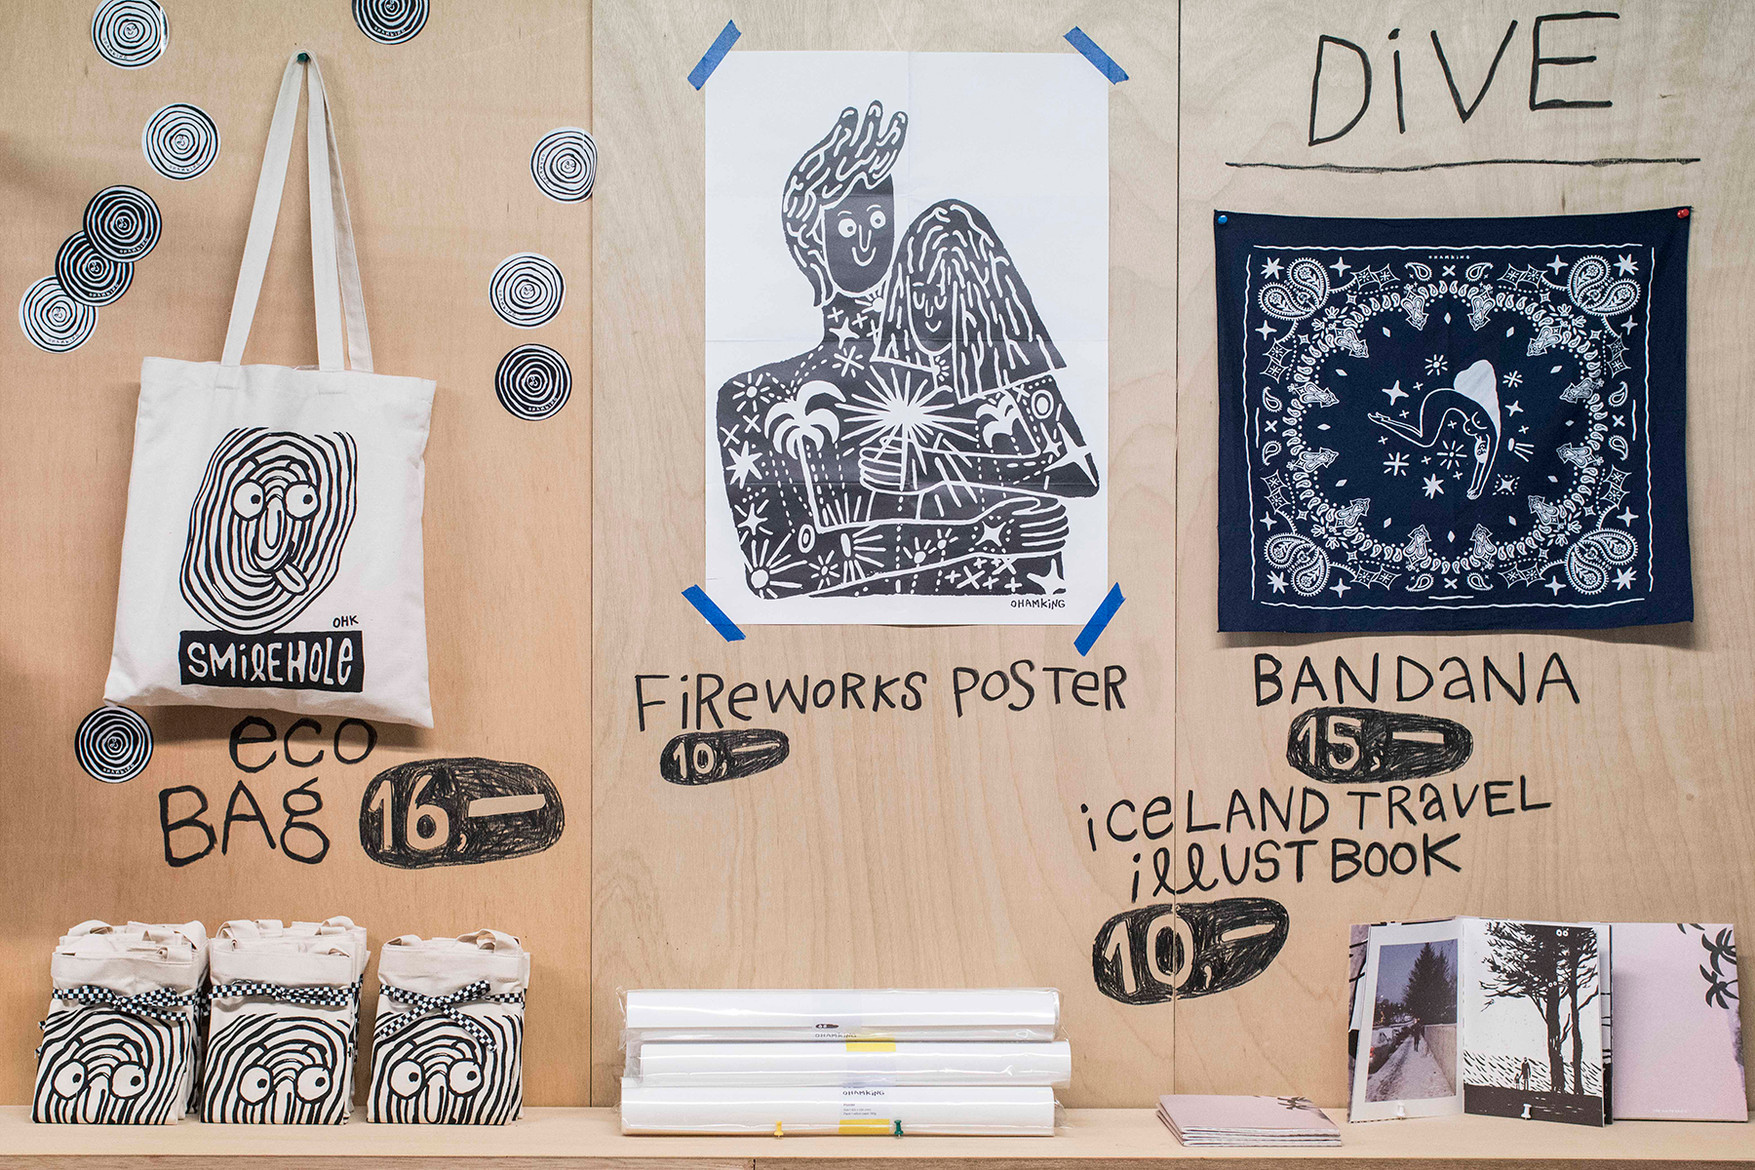 DiVE
OHK
SMilEHOlE
OHAMKiNG
OHAMKING
eco
BAg
16,-
FiReWORKS POSTeR
10,-
BANDaNA
15,-
iceLAND TRaVEL
illUST BOOK
10,-
OHAMKiNG
OHAMKiNG